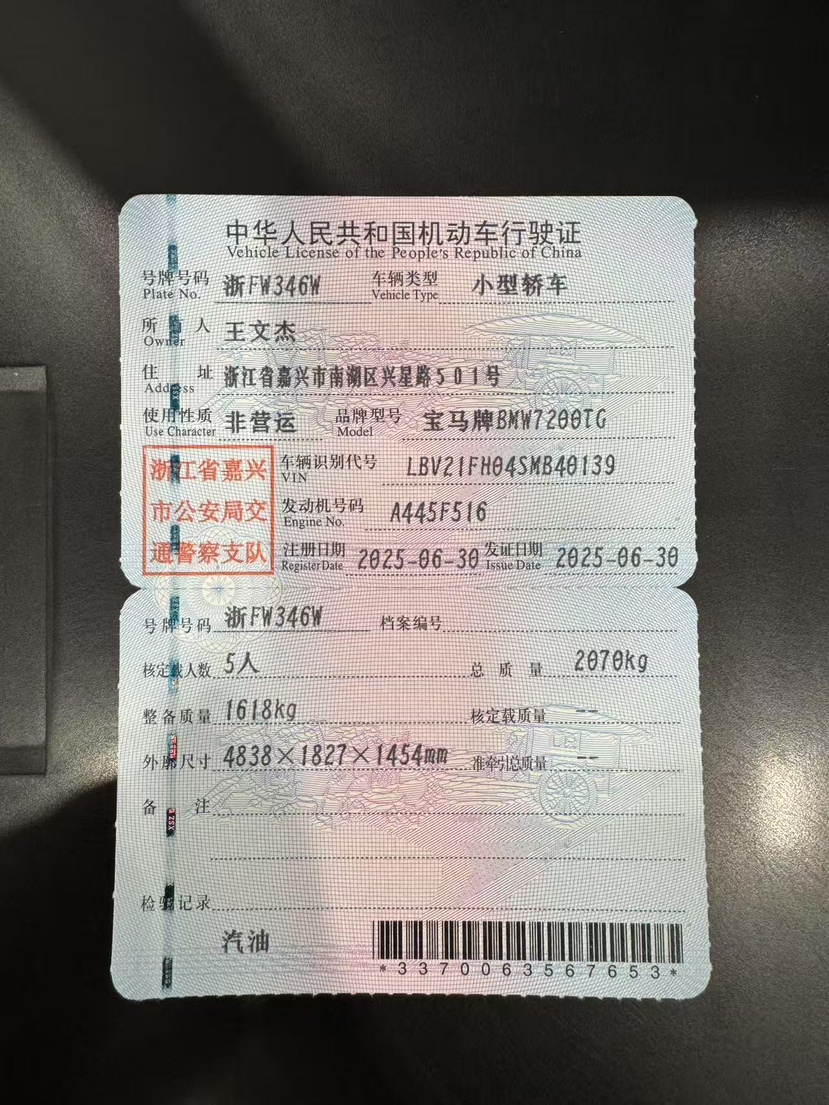 中华人民共和国机动车行驶证
Vehicle License of the People's Republic of China
号牌号码 浙FW346W 车辆类型 小型轿车
Plate No. Vehicle Type
所有人 王文杰
Owner
住址 浙江省嘉兴市南湖区兴星路501号
Address
使用性质 非营运 品牌型号 宝马牌BMW7200TG
Use Character Model
浙江省嘉兴
市公安局交
通警察支队
车辆识别代号 LBV21FH04SMB40139
VIN
发动机号码 A445F516
Engine No.
注册日期 2025-06-30 发证日期 2025-06-30
Register Date Issue Date
号牌号码 浙FW346W 档案编号
核定载人数 5人 总质量 2070kg
整备质量 1618kg 核定载质量 --
外廓尺寸 4838×1827×1454mm 准牵引总质量 --
备注
检验记录
汽油
*3370063567653*